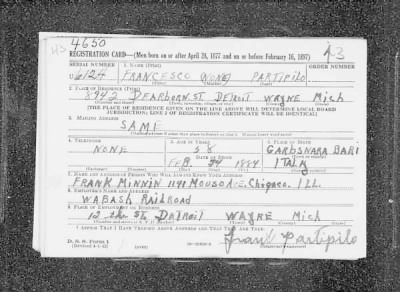 4650
13
REGISTRATION CARD—(Men born on or after April 28, 1877 and on or before February 16, 1897)
SERIAL NUMBER 1. NAME (Print) ORDER NUMBER
U 6124 FRANCESCO NONE PARTIPILO
2. PLACE OF RESIDENCE (Print)
5942 DEARBORN ST DETROIT WAYNE Mich
[THE PLACE OF RESIDENCE GIVEN ON THE LINE ABOVE WILL DETERMINE LOCAL BOARD
JURISDICTION; LINE 2 OF REGISTRATION CERTIFICATE WILL BE IDENTICAL]
3. MAILING ADDRESS
SAME
4. TELEPHONE 5. AGE IN YEARS 6. PLACE OF BIRTH
NONE 58 BARI
DATE OF BIRTH
FEB. 24 1884 ITALY
7. NAME AND ADDRESS OF PERSON WHO WILL ALWAYS KNOW YOUR ADDRESS
FRANK MINNIN 1141 AVE. Chigaco. ILL
8. EMPLOYER'S NAME AND ADDRESS
WABASH RAILROAD
9. PLACE OF EMPLOYMENT OR BUSINESS
12 the ST. DETROIT WAYNE Mich
I AFFIRM THAT I HAVE VERIFIED ABOVE ANSWERS AND THAT THEY ARE TRUE.
D. S. S. Form 1
(Revised 4-1-42)
Frank Partipilo